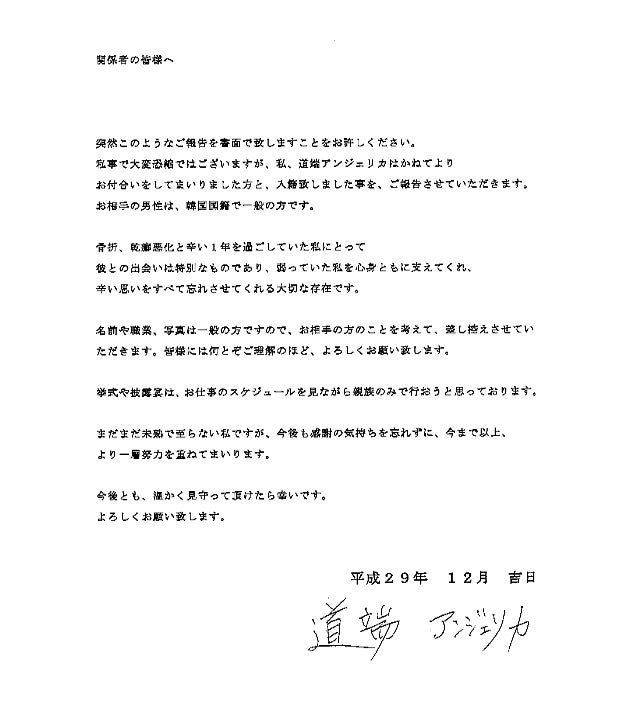 関係者の皆様へ
突然このようなご報告を書面で致しますことをお許しください。
私事で大変恐縮ではございますが、私、道端アンジェリカはかねてより
お付合いをしてまいりました方と、入籍致しました事を、ご報告させていただきます。
お相手の男性は、韓国国籍で一般の方です。
骨折、乾癬悪化と辛い1年を過ごしていた私にとって
彼との出会いは特別なものであり、弱っていた私を心身ともに支えてくれ、
辛い思いをすべて忘れさせてくれる大切な存在です。
名前や職業、写真は一般の方ですので、お相手の方のことを考えて、差し控えさせてい
ただきます。皆様には何とぞご理解のほど、よろしくお願い致します。
挙式や披露宴は、お仕事のスケジュールを見ながら親族のみで行おうと思っております。
まだまだ未熟で至らない私ですが、今後も感謝の気持ちを忘れずに、今まで以上、
より一層努力を重ねてまいります。
今後とも、温かく見守って頂けたら幸いです。
よろしくお願い致します。
平成29年 12月 吉日
道端 アンジェリカ